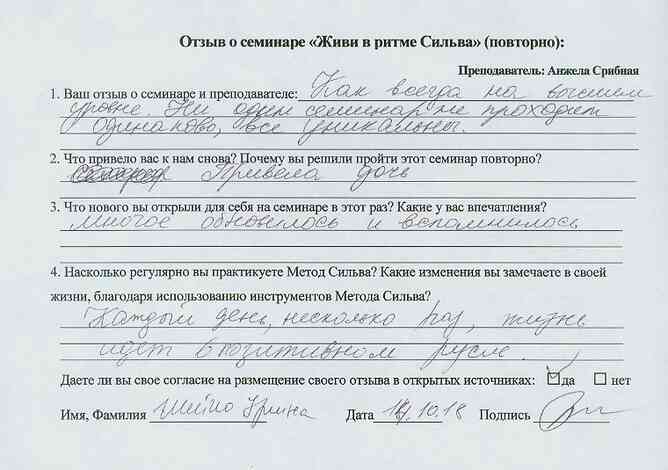 Отзыв о семинаре «Живи в ритме Сильва» (повторно):
Преподаватель: Анжела Срибная
1. Ваш отзыв о семинаре и преподавателе: Как всегда на высшем
уровне. Ни один семинар не проходит
одинаково, все уникальны.
2. Что привело вас к нам снова? Почему вы решили пройти этот семинар повторно?
Привела дочь
3. Что нового вы открыли для себя на семинаре в этот раз? Какие у вас впечатления?
Многое обновилось и вспомнилось
4. Насколько регулярно вы практикуете Метод Сильва? Какие изменения вы замечаете в своей
жизни, благодаря использованию инструментов Метода Сильва?
Каждый день, несколько раз, жизнь
идет в позитивном русле.
Даете ли вы свое согласие на размещение своего отзыва в открытых источниках: да нет
Имя, Фамилия Ирина Дата .10.18 Подпись